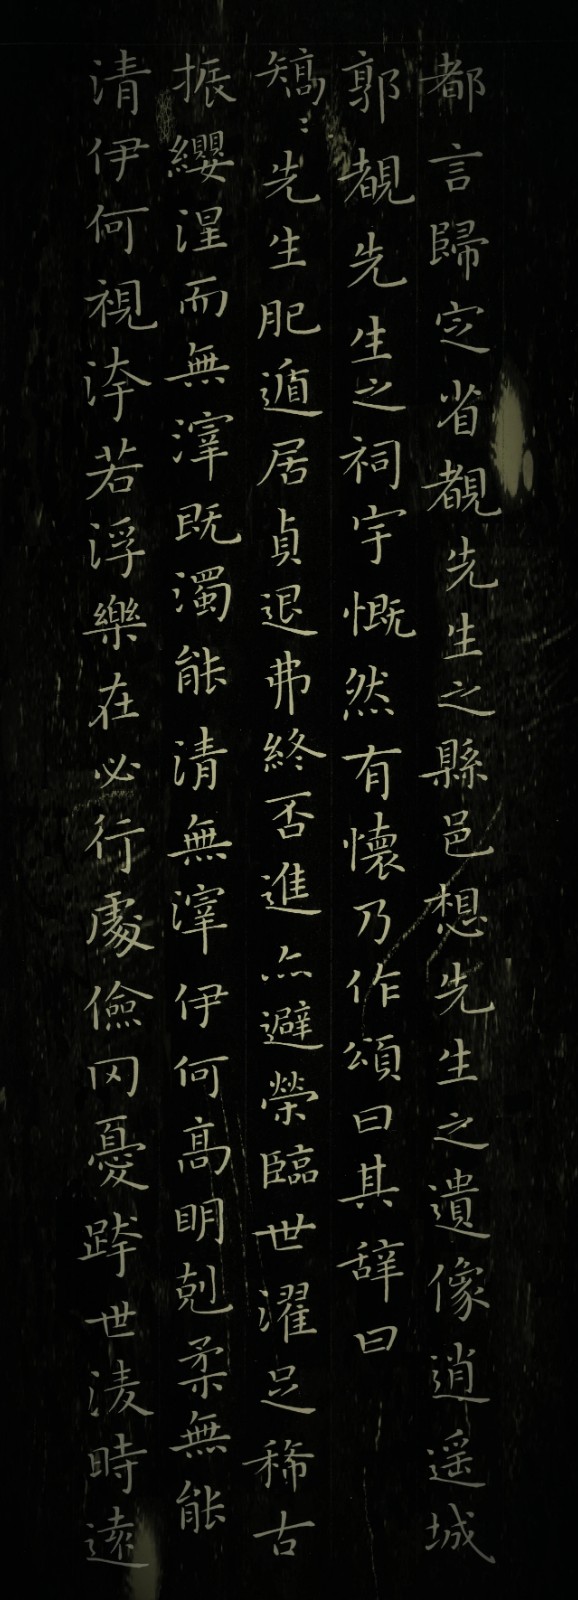 都言歸定省覩先生之縣邑想先生之遺像逍遥城
郭覩先生之祠宇慨然有懷乃作頌曰其辞曰
矯〻先生肥遁居貞退弗終否進亦避榮臨世濯足稀古
振纓涅而無滓既濁能清無滓伊何高明剋柔無能
清伊何視洿若浮樂在必行處儉罔憂跨世淩時遠